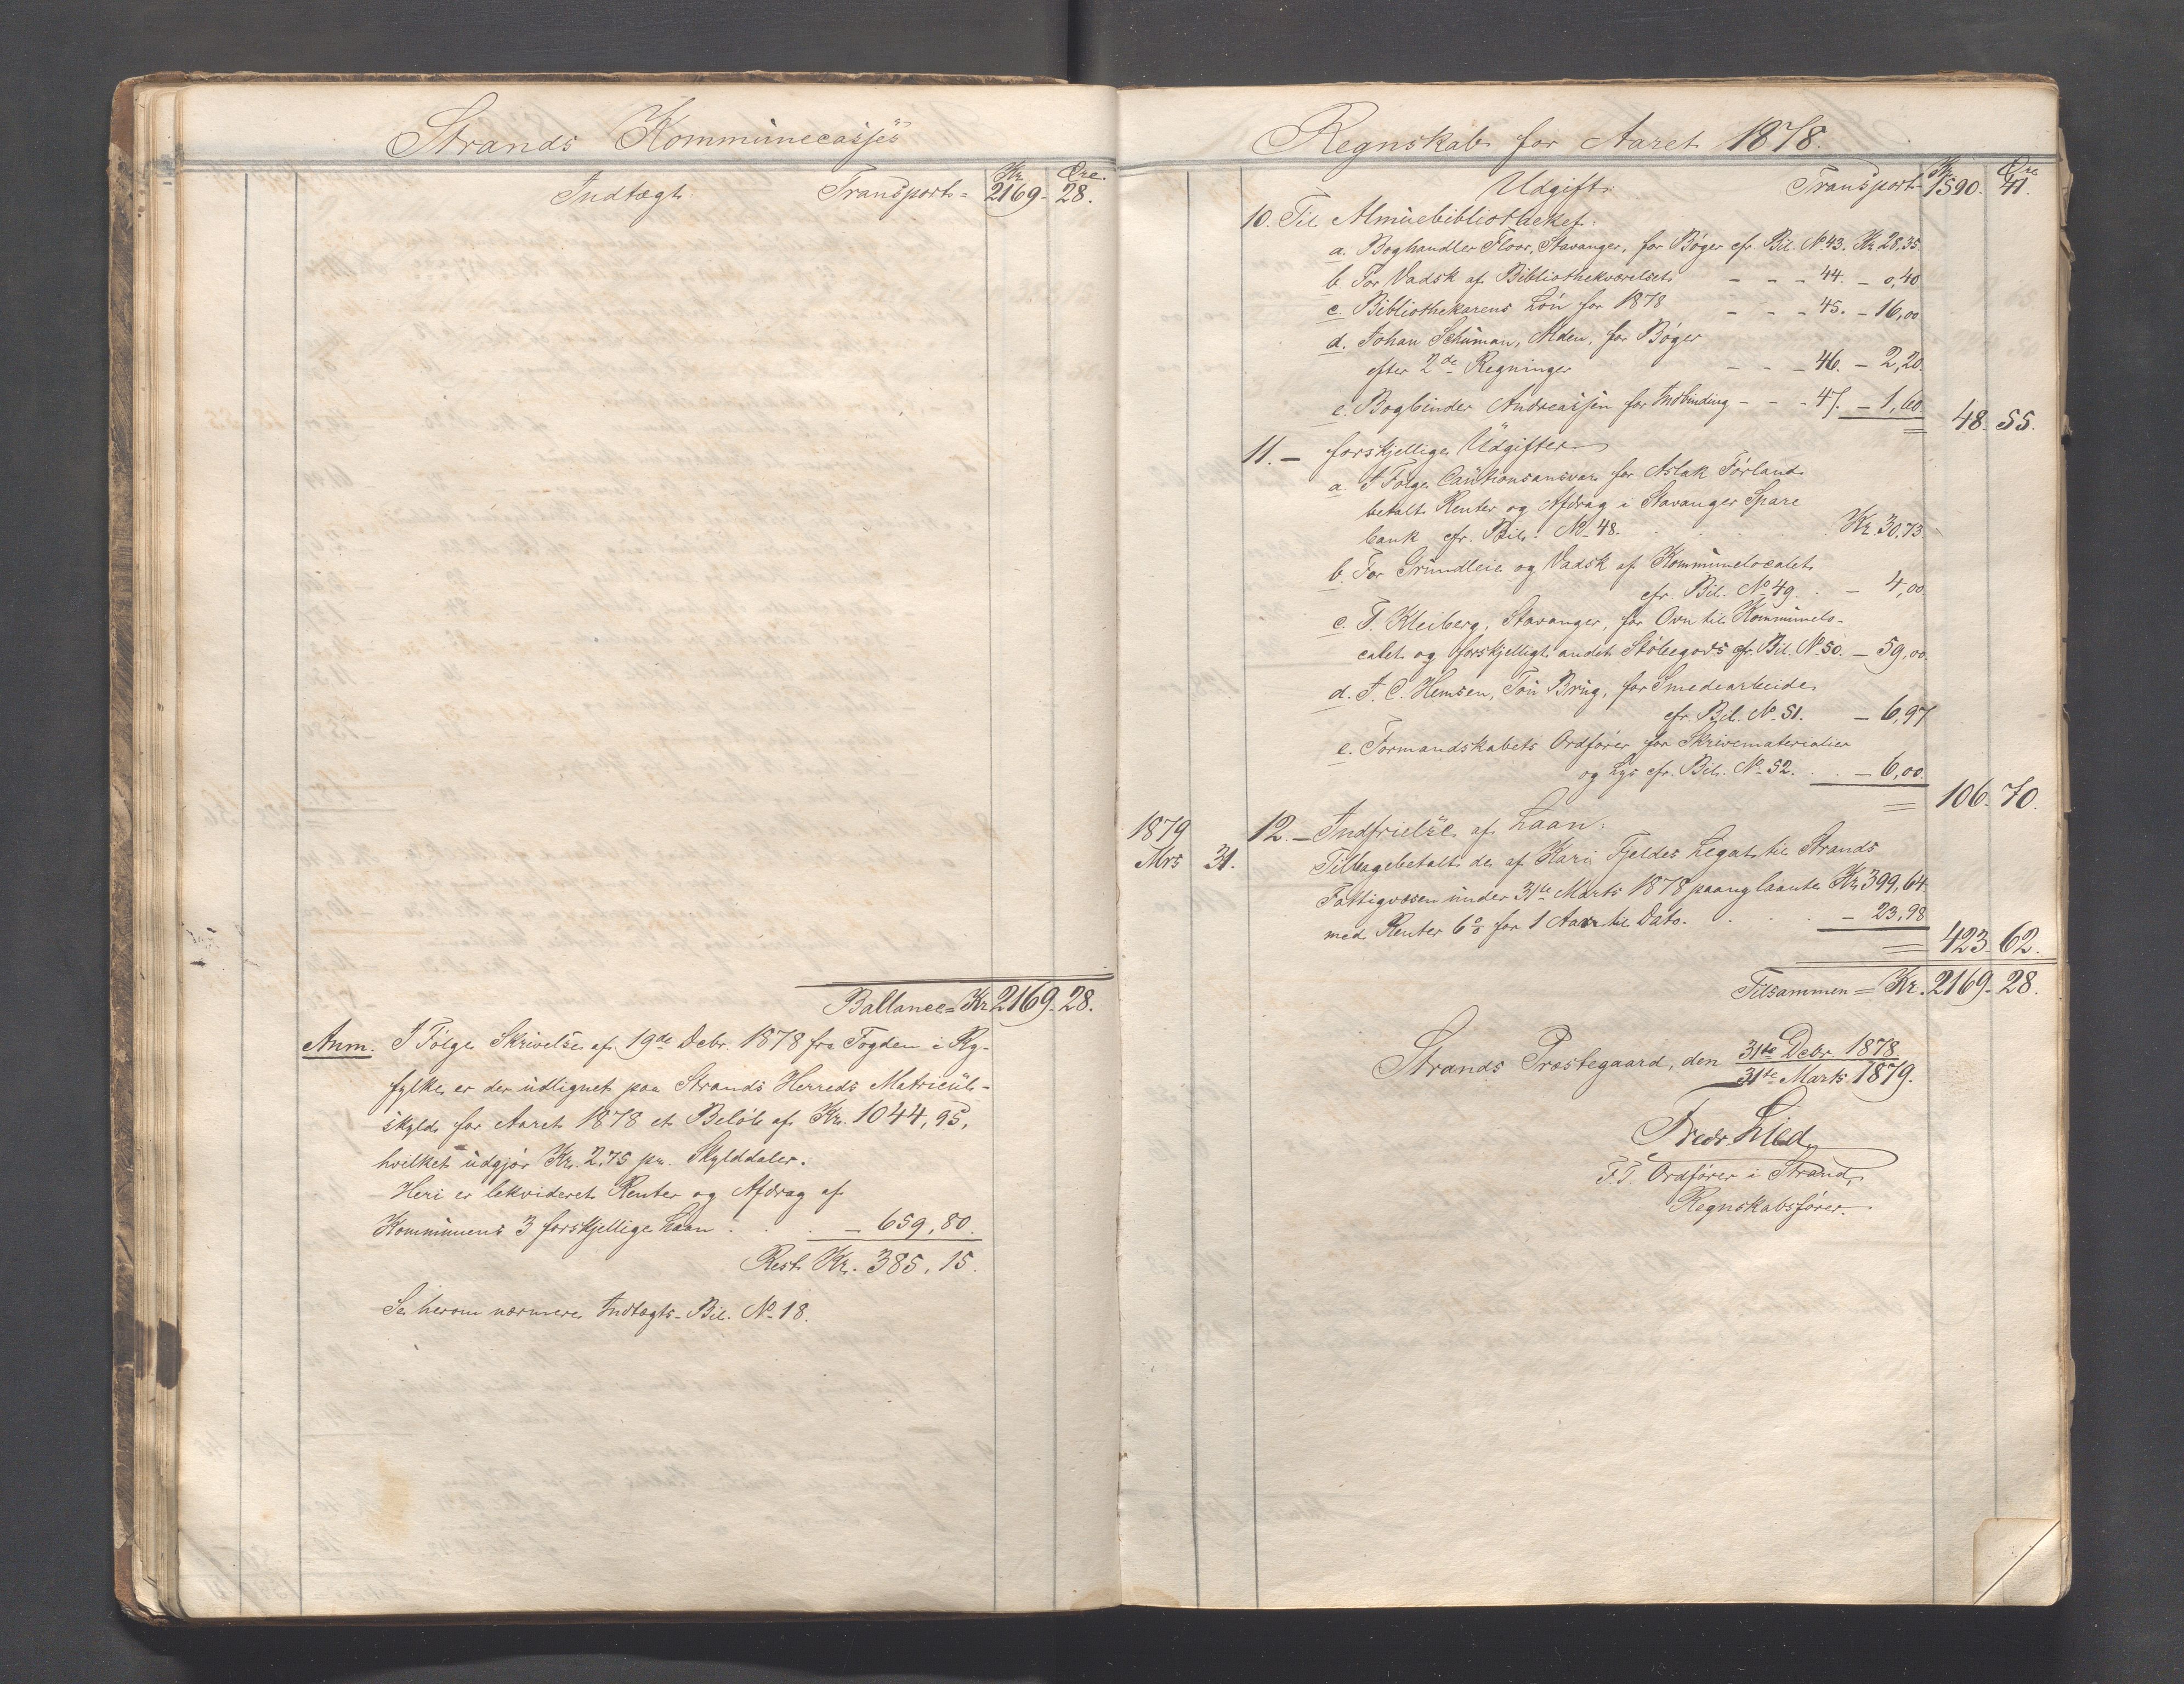 Strands Kommunecasses
Kr. Øre.
Indtægt. Transport = 2169 - 28.
Ballance = Kr. 2169 - 28.
Anm. I Følge Skrivelse af 19de Debr. 1878 fra Fogden i Ry-
fylke er der udlignet paa Strands Herreds Matricul-
skyld for Aaret 1878 et Beløb af Kr. 1044,95,
hvilket udgjør Kr. 2,75 pr. Skylddaler.
Heri er lekvideret Renter og Afdrag af
Kommunens 3 forskjellige Laan . . . — 659,80.
Rest Kr. 385,15.
Se herom nærmere Indtægts-Bil. No 18.
Regnskab for Aaret 1878.
Kr. Øre
Udgift. Transport 1590. 41.
10. Til Almuebibliotheket:
a. Boghandler Floor, Stavanger, for Bøger cfr. Bil. No 43. Kr. 28,35.
b. For Vadsk af Bibliothekværelset - - - 44. - 0,40
c. Bibliothekarens Løn for 1878 - - - 45. - 16,00
d. Johan Schuman, Alden, for Bøger
efter 2de Regninger - - - 46. - 2,20.
e. Bogbinder Andreassen for Indbinding - - - 47. - 1,60.
= 48. 55.
11. — forskjellige Udgifter
a. I Følge Cautionsansvar for Aslak Førland
betalt Renter og Afdrag i Stavanger Spare
bank cfr. Bil. No 48. . . . . Kr. 30.73
b. For Grundleie og Vadsk af Kommunelocalet
cfr. Bil. No 49. . — 4,00
c. T. Kleiberg, Stavanger, for Ovn til Kommunelo-
calet og forskjelligt andet Støbegods cfr. Bil. No 50. — 59,00.
d. A. C. Hemsen, Tou Brug, for Smedearbeide
cfr. Bil. No 51. — 6,97
e. Formandskabets Ordfører for Skrivematerialier
og Lys cfr. Bil. No 52. . . — 6,00.
= 106. 70.
1879
Mrs 31. 12. — Indfrielse af Laan:
Tilbagebetalt de af Kari Fjeldes Legat til Strands
Fattigvæsen under 31te Marts 1878 paany laante Kr. 399,64
med Renter 6 % for 1 Aar til Dato. . . . — 23,98
= 423. 62.
Tilsammen = Kr. 2169 - 28.
Strands Præstegaard, den 31te Debr. 1878
31te Marts 1879.
Fredr. Lied
F. T. Ordfører i Strand,
Regnskabsfører.